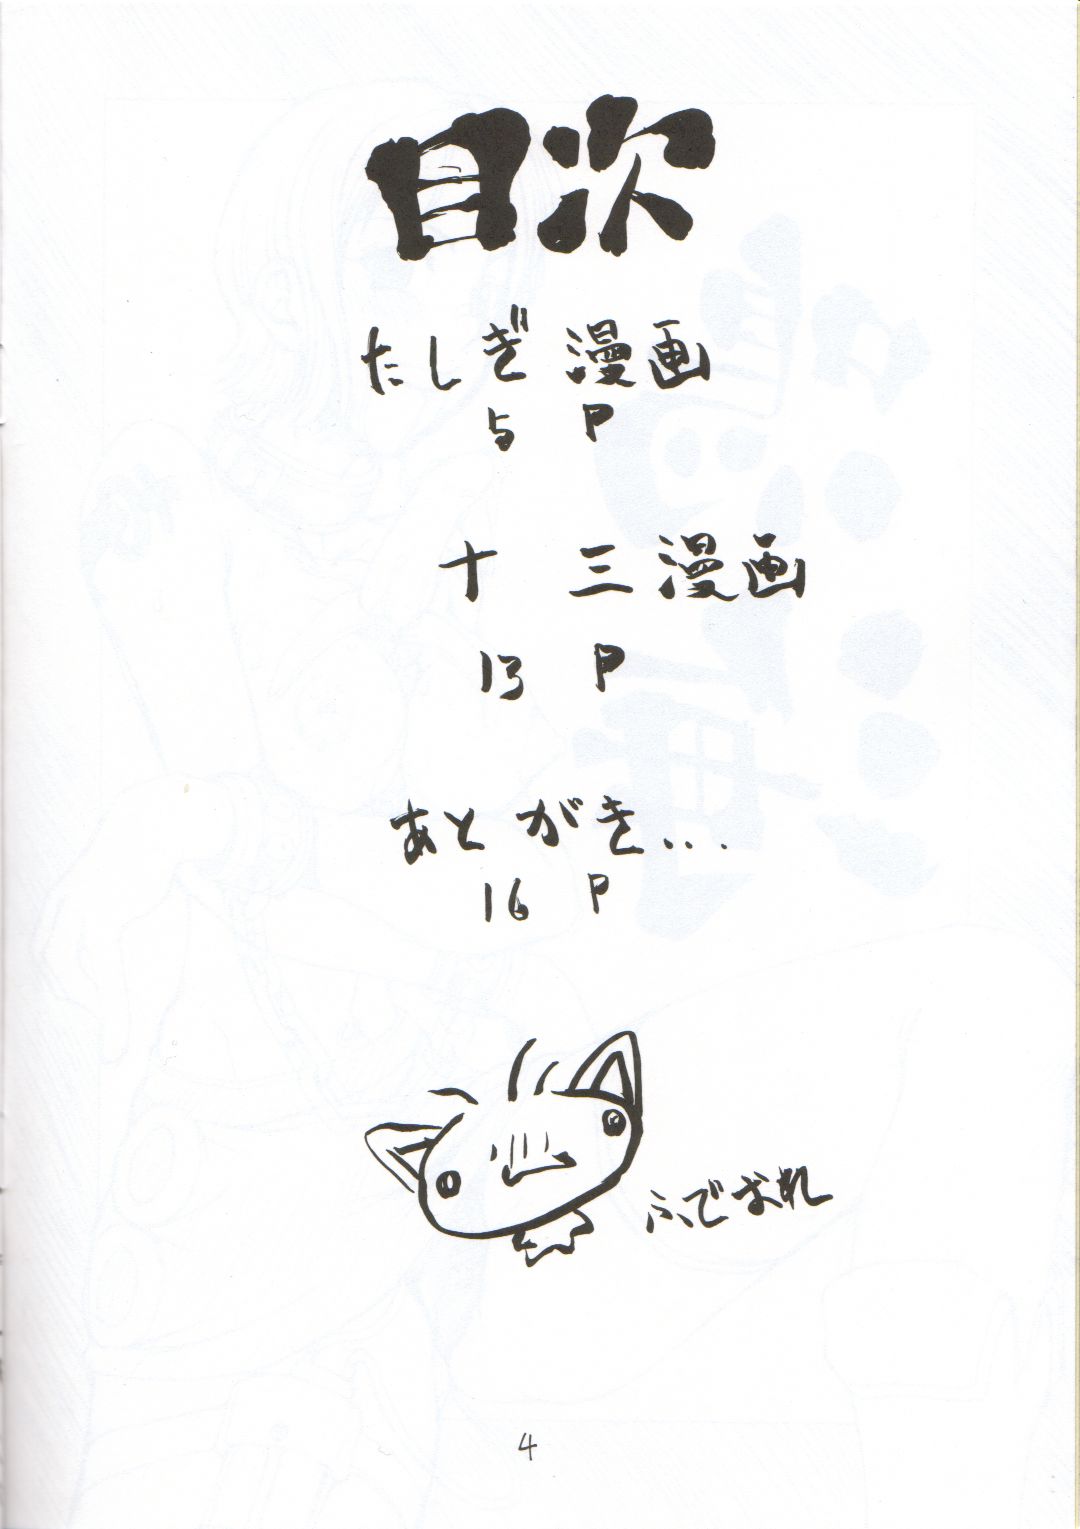 目次
たしぎ 漫画
5 P
十 三 漫画
13 P
あとがき...
16 P
ふでおれ
4